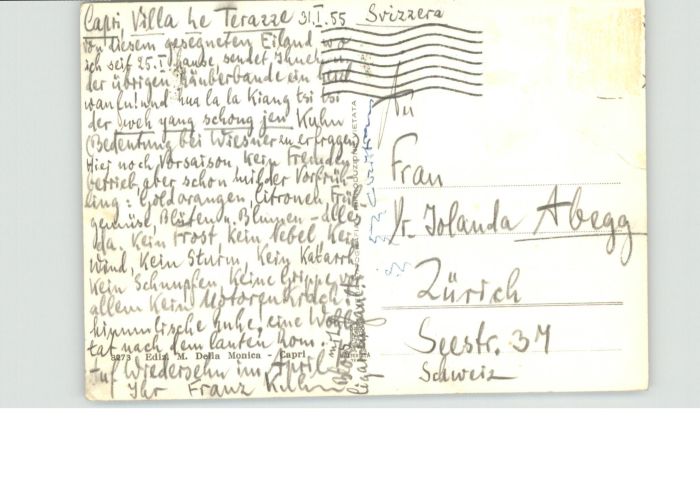 Capri, Villa Le Terazze 31.I.55 Svizzera
von diesem gesegneten Eiland wo
ich seit 25.I. hause, sendet Ihnen u.
der übrigen Räuberbande ein
wanfu! und ma la la Kiang tsi tsi
der weh yang schong jen Kuhn
(Bedeutung bei Wiesner zu erfragen
Hier noch Vorsaison, kein Fremden
betrieb, aber schon milder Vorfrüh
ling: Goldorangen, Citronen, Früh
gemüse, Blüten u. Blumen - alles
da. Kein Frost, kein Nebel, kein
Wind, kein Sturm, kein Katarrh
kein Schnupfen, keine Grippe, vor
allem kein Motorenkrach:
himmlische Ruhe, eine Wohl
tat nach dem lauten Rom.
Auf Wiedersehn im April
Ihr Franz Kuhn
3273 Ediz. M. Della Monica - Capri
An
Frau
Dr. Jolanda Abegg
Zürich
Seestr. 37
Schweiz